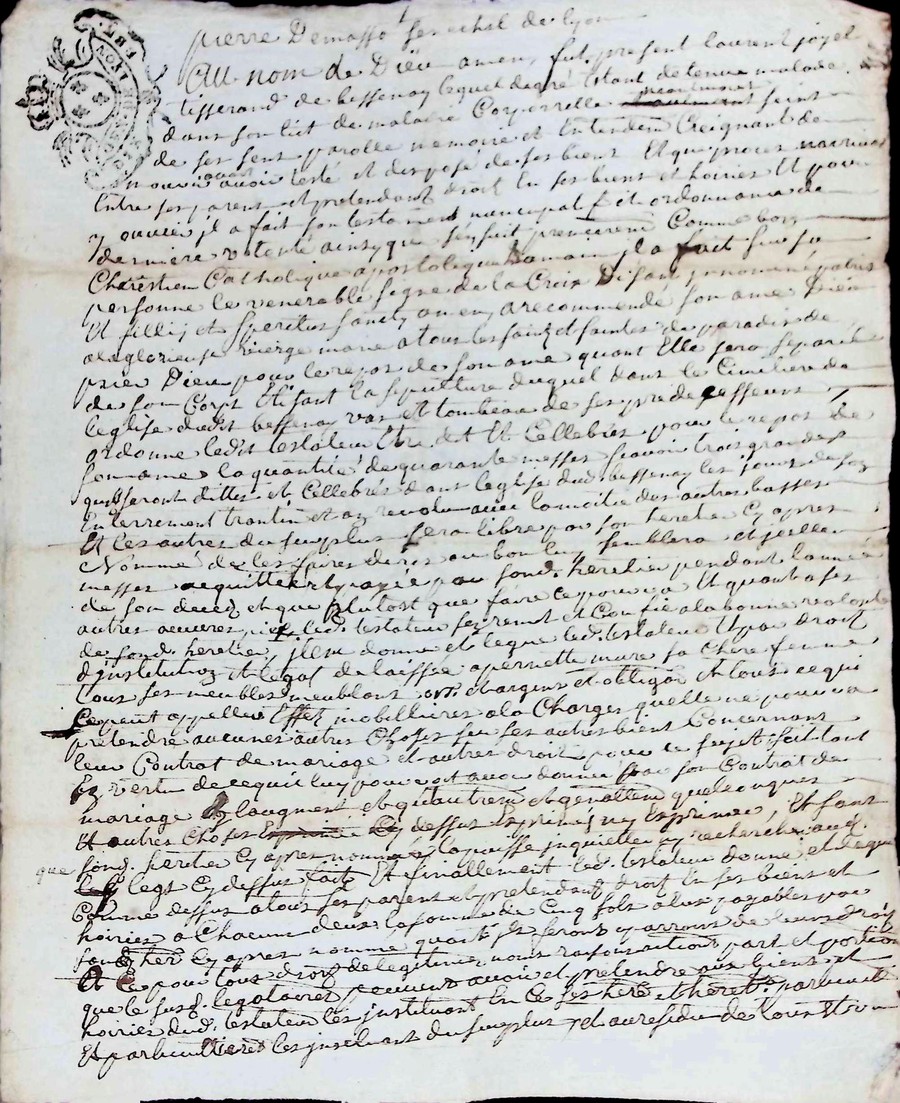 pierre Demasso senechal de lyon
Au nom de Dieu amen, fut present laurent joyel
tisserand de bessenay lequel degré estant detenu malade
dans son lict de maladie Corporelle seint
de ses sens parolle memoire et Entendem Creignant de
mourir avoir testé et disposé de ses biens Et que proces
Entre ses parens et pretendant droit En ses biens et hoiries Et pour
y ouvier jl a fait son testament nuncupatif et ordonnance de
derniere volonté ainsy que sensuit premierem Comme bon
Chrestien Catholique apostolique Romain jl a fait sur sa
personne le venerable signe de la Croix Disant jn nomine patris
Et fillij et Speritus sancty amen, a recommendé son ame a Dieu
a la glorieuse vierge marie a tous les saintz et saintes de paradis de
prier Dieu pour le repos de son ame quant Elle sera separée
de son Corps Elisant la sepulture duquel dans le Cimitiere de
leglise dudit bessenay vas et tombeau de ses predecesseurs
ordonne ledit testateur Etre dit Et Cellebrés pour le repos de
son ame la quantité de quarante messes scavoir trois grandes
qui seront dittes et Cellebrés dans leglise dud. bessenay les jours de son
Enterrement trantin et an revolu avec la moitié des autres basses
Et les autres du surplus sera libre par son heretier cy apres
Nommé de les faires dires ou bon luy semblera et jcelles
messes acquitter et payée par sond. heretier pendant lannée
de son deced, et que plutost que faire ce pourra Et quant a ses
autres oeuvres pies led. testateur sen remet et Confie a la bonne volonté
de sond. heretier, jtem donne et legue led. testateur Et par droit
djnstitution et legat delaissée a pernette mure sa Chere femme
tous ses meubles meublans or, et argent et obligaon et tous ce qui
Ce peut appeller Effet mobilliaires a la Charges quelle ne pourra
pretendre aucunes autres Choses sur ses autres bient Concernant
leur Contrat de mariage et autres droit pour ce sujet soit tant
En vertu de ce quil luy pouvoit avoir donné par son Contrat de
mariage En laugment et quautrem et generallem quelconques
Et autres Choses Cy dessus Exprimé, ny Exprimée, Et sans
que sond. heretier Cy apres nommé la puisse jnquietter ny rechercher aud.
legs Cy dessus fait Et finallement led. testateur donne et legue
Comme dessus a tous ses parent et pretendant droit En ses bient et
hoiries a Chacun deux la somme de Cinq sols a eux payables par
sond. her. Cy apres nommé quant jls seront apparrois de leurs droit
Et Ce pour tous droitz de legitime, part et portion
que le susd. legataires peuvent avoir et pretendre aux bient et
hoiries dud. testateur les jnstituant En Ce ses heré. et herets. particuliers
Et particulieres les jnseluant du surplus, et au residu de tous Et